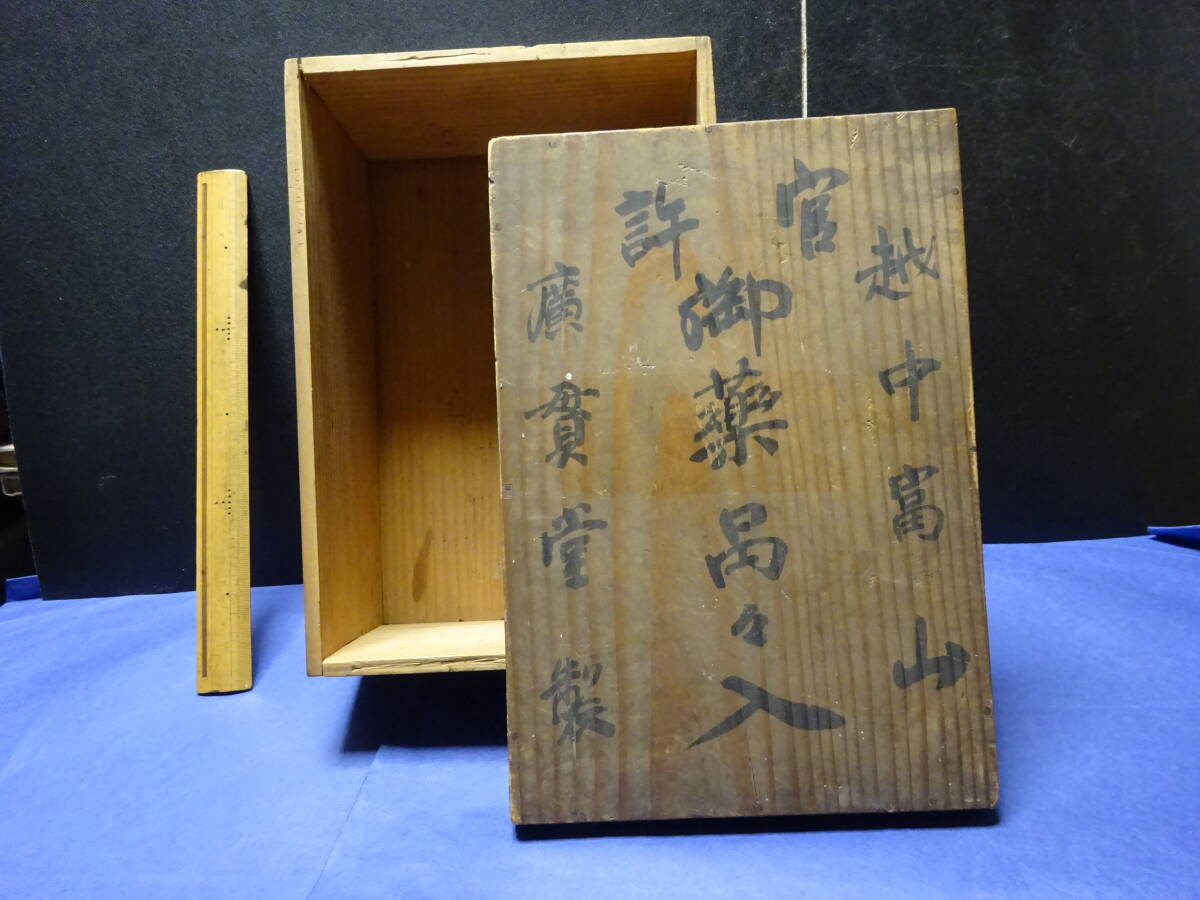 越中富山
官許
御藥品々入
廣貫堂製